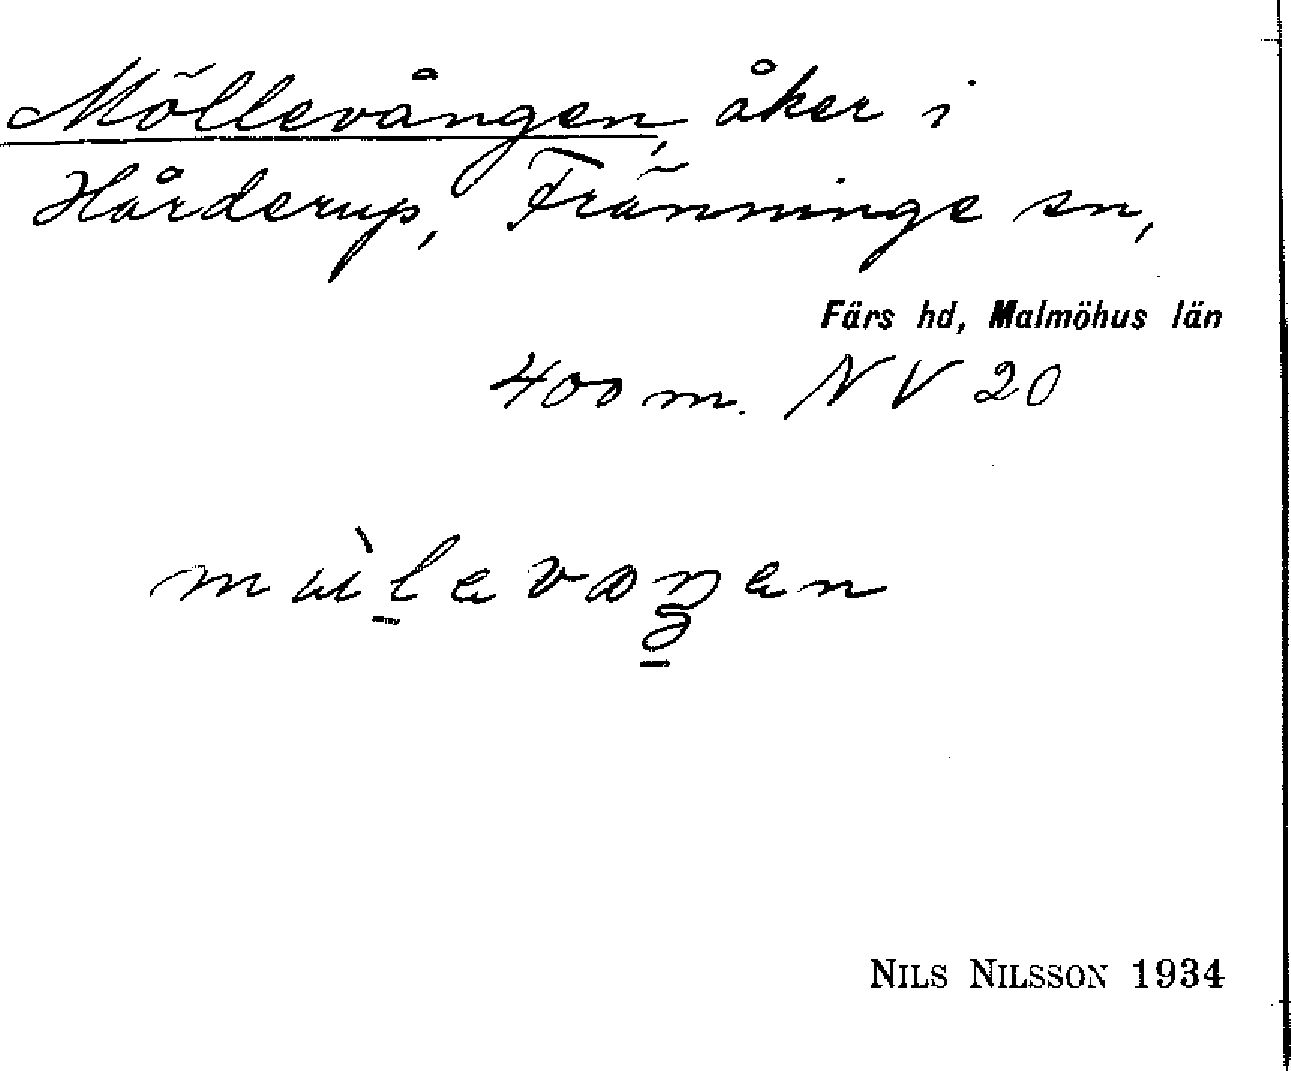 Möllevången, åker i
Hårderup, Fränninge sn,
Färs hd, Malmöhus län
400 m. NV 20
NILS NILSSON 1934